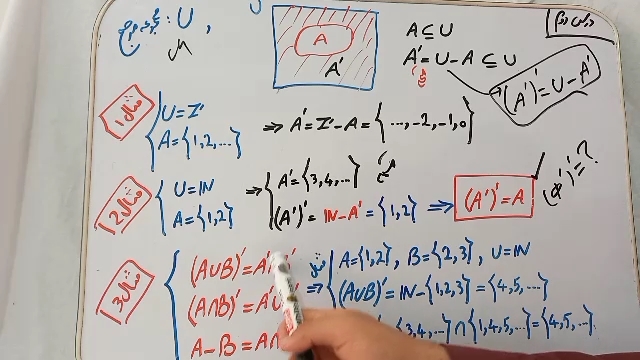 U
A
A'
A ⊆ U
A' = U - A ⊆ U
(A')' = U - A'
مثال 1
U = Z
A = {1,2,...}
⇒ A' = Z - A = {..., -2, -1, 0}
مثال 2
U = IN
A = {1,2}
⇒ A' = {3,4,...}
(A')' = IN - A' = {1,2} ⇒ (A')' = A
(φ')' = ?
مثال 3
(A∪B)' = A'
(A∩B)' = A'∪
A - B = A∩
⇒ A = {1,2}, B = {2,3}, U = IN
(A∪B)' = IN - {1,2,3} = {4,5,...}
{3,4,...} ∩ {1,4,5,...} = {4,5,...}